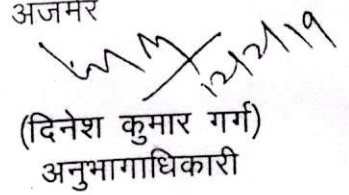 अजमेर
(दिनेश कुमार गर्ग)
अनुभागाधिकारी